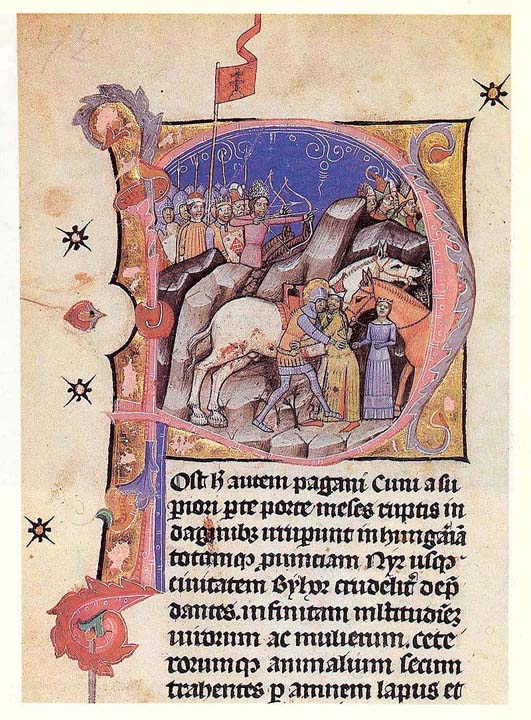 Post h̄ autem pagani Cuni a su
piori ꝑte porte meses ruptis in
daginibꝫ irruperunt in hungariā
totamqꝫ ꝓuinciam Nyr usqꝫ
ciuitatem Byhor crudelit̄ dep̄
dantes. infinitam ml̄titudinēz
uirorum ac mulierum. cete
rorumqꝫ animalium secum
trahentes ꝑ amnem lapus et